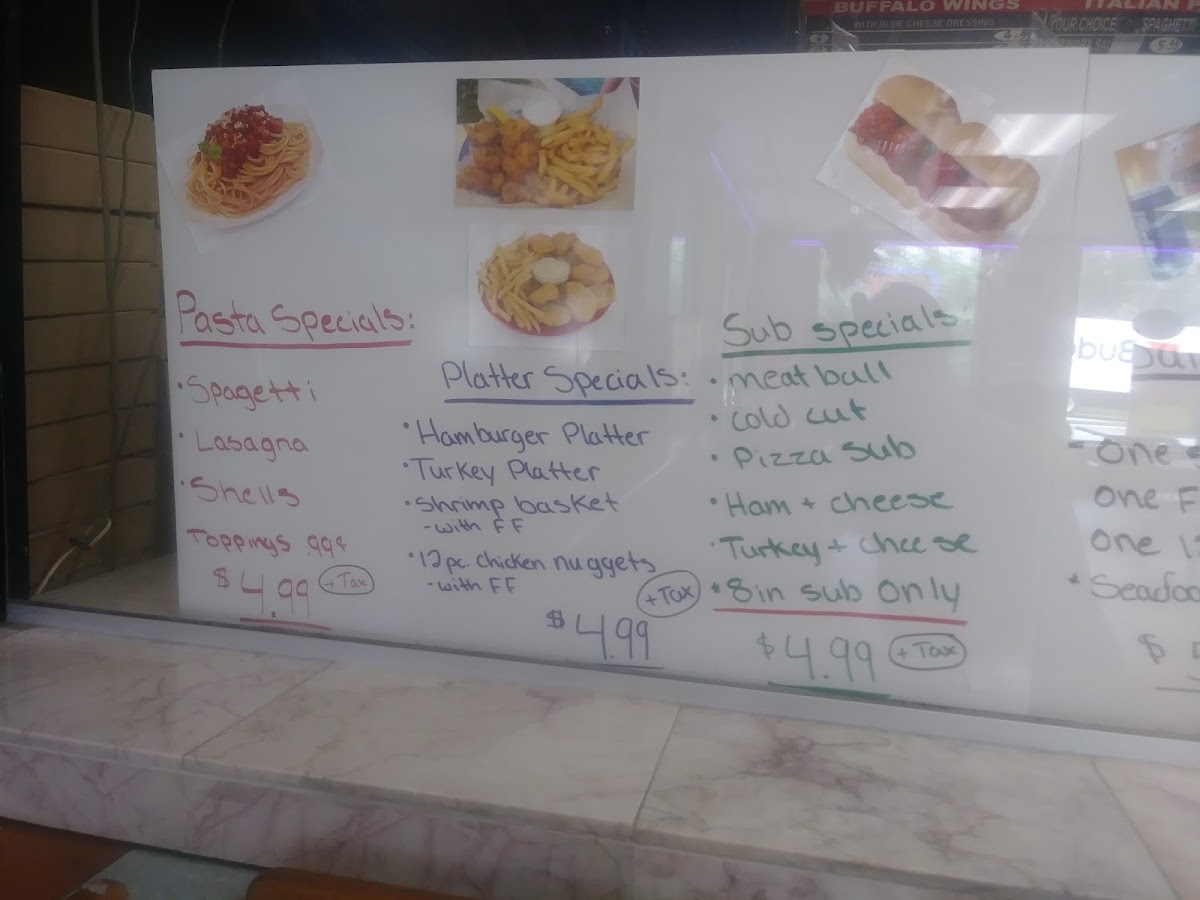 BUFFALO WINGS
WITH BLUE CHEESE DRESSING
ITALIAN
YOUR CHOICE
SPAGHETTI
Pasta Specials:
• Spagetti
• Lasagna
• Shells
Toppings .99¢
$4.99 + Tax
Platter Specials:
• Hamburger Platter
• Turkey Platter
• Shrimp basket
- with FF
• 12pc. chicken nuggets
- with FF
+ Tax
$4.99
Sub specials:
• meat ball
• cold cut
• Pizza sub
• Ham + cheese
• Turkey + cheese
* 8in sub only
$4.99 + Tax
- One
One
One
* Seafoo
$